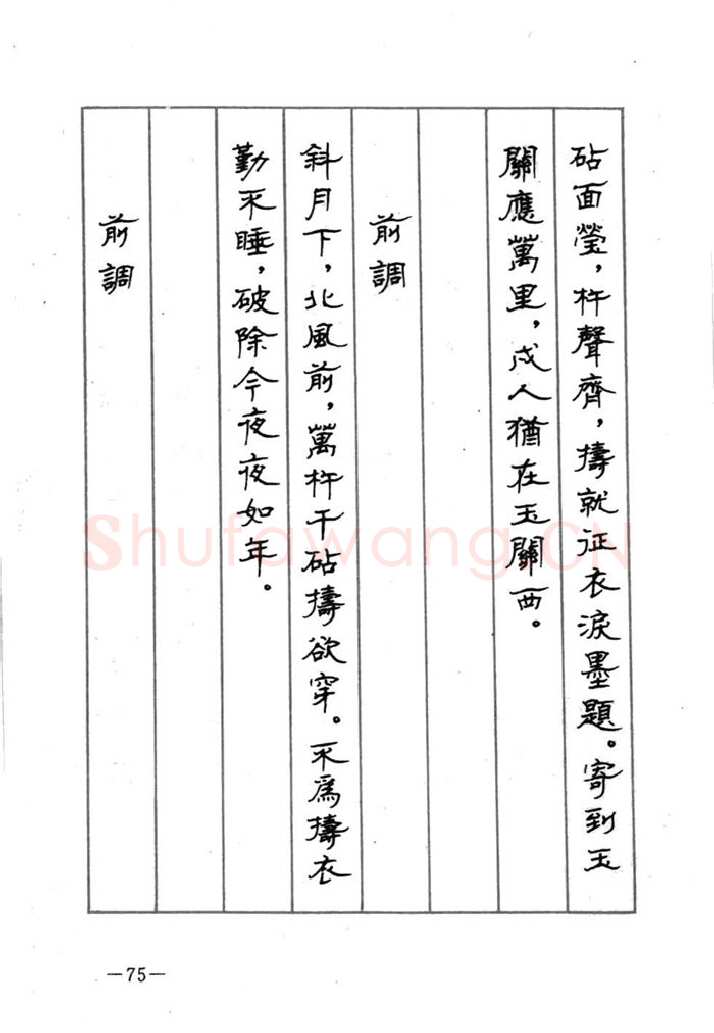 砧面瑩，杵聲齊，擣就征衣淚墨題。寄到玉
關應萬里，戍人猶在玉關西。
前調
斜月下，北風前，萬杵千砧擣欲穿。不爲擣衣
勤不睡，破除今夜夜如年。
前調
Shufawang.CN
—75—